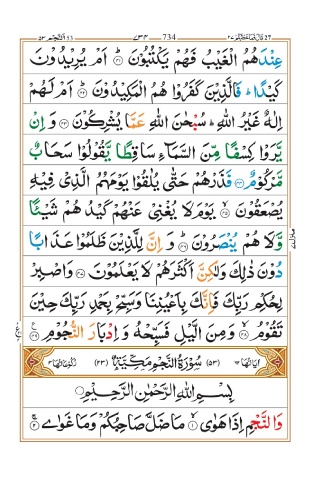 734 ٧٣٤
عِنْدَهُمُ الْغَيْبُ فَهُمْ يَكْتُبُوْنَ ؕ﴿۴۱﴾ اَمْ يُرِيْدُوْنَ
كَيْدًا ؕ فَالَّذِيْنَ كَفَرُوْا هُمُ الْمَكِيْدُوْنَ ؕ﴿۴۲﴾ اَمْ لَهُمْ
اِلٰهٌ غَيْرُ اللّٰهِ ؕ سُبْحٰنَ اللّٰهِ عَمَّا يُشْرِكُوْنَ ﴿۴۳﴾ وَاِنْ
يَّرَوْا كِسْفًا مِّنَ السَّمَآءِ سَاقِطًا يَّقُوْلُوْا سَحَابٌ
مَّرْكُوْمٌ ﴿۴۴﴾ فَذَرْهُمْ حَتّٰى يُلٰقُوْا يَوْمَهُمُ الَّذِىْ فِيْهِ
يُصْعَقُوْنَ ۙ﴿۴۵﴾ يَوْمَ لَا يُغْنِىْ عَنْهُمْ كَيْدُهُمْ شَيْئًا
وَّلَا هُمْ يُنْصَرُوْنَ ؕ﴿۴۶﴾ وَاِنَّ لِلَّذِيْنَ ظَلَمُوْا عَذَابًا
دُوْنَ ذٰلِكَ وَلٰكِنَّ اَكْثَرَهُمْ لَا يَعْلَمُوْنَ ﴿۴۷﴾ وَاصْبِرْ
لِحُكْمِ رَبِّكَ فَاِنَّكَ بِاَعْيُنِنَا وَسَبِّحْ بِحَمْدِ رَبِّكَ حِيْنَ
تَقُوْمُ ۙ﴿۴۸﴾ وَمِنَ الَّيْلِ فَسَبِّحْهُ وَاِدْبَارَ النُّجُوْمِ ﴿۴۹﴾
اٰيَاتُهَا ٦٢ (٥٣) سُوْرَةُ النَّجْمِ مَكِّيَّةٌ (٢٣) رُكُوْعَاتُهَا ٣
بِسْمِ اللّٰهِ الرَّحْمٰنِ الرَّحِيْمِ
وَالنَّجْمِ اِذَا هَوٰى ۙ﴿۱﴾ مَا ضَلَّ صَاحِبُكُمْ وَمَا غَوٰى ۚ﴿۲﴾